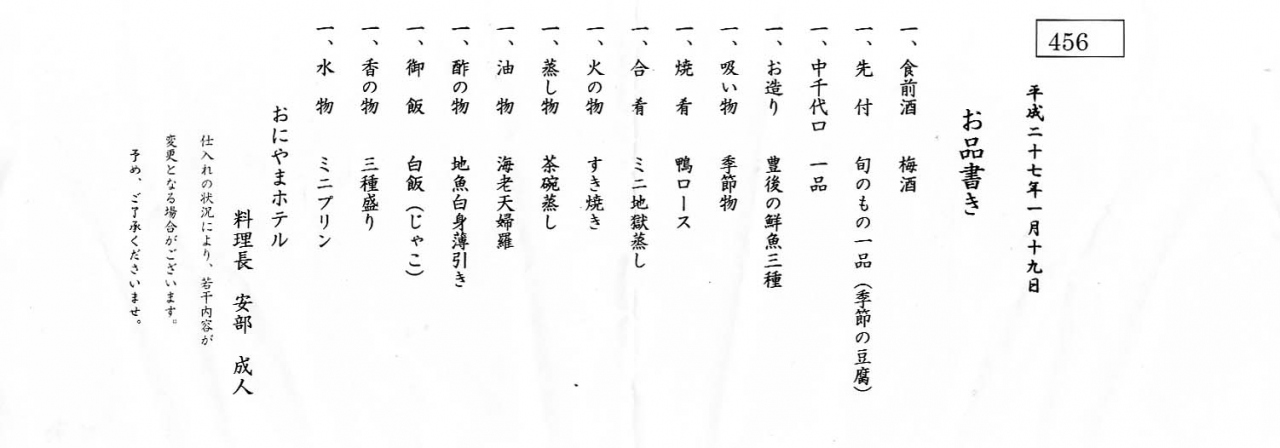 456
平成二十七年一月十九日
お品書き
一、食前酒 梅酒
一、先付 旬のもの一品(季節の豆腐)
一、中千代口 一品
一、お造り 豊後の鮮魚三種
一、吸い物 季節物
一、焼肴 鴨ロース
一、合肴 ミニ地獄蒸し
一、火の物 すき焼き
一、蒸し物 茶碗蒸し
一、油物 海老天婦羅
一、酢の物 地魚白身薄引き
一、御飯 白飯(じゃこ)
一、香の物 三種盛り
一、水物 ミニプリン
おにやまホテル
料理長 安部 成人
仕入れの状況により、若干内容が
変更となる場合がございます。
予め、ご了承くださいませ。